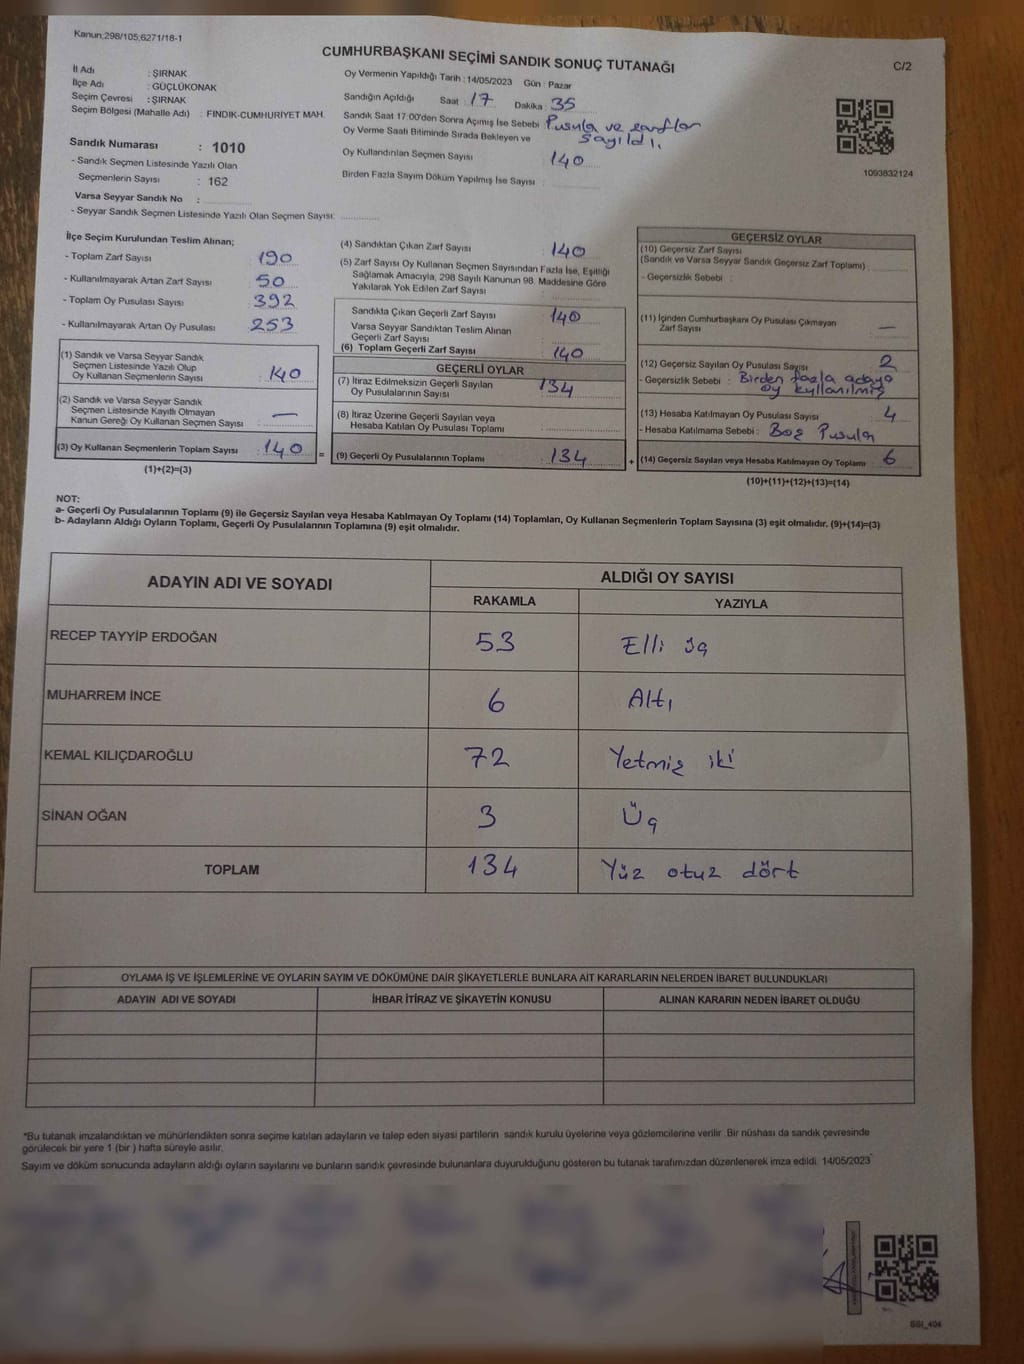 Kanun;298/105;6271/18-1
CUMHURBAŞKANI SEÇİMİ SANDIK SONUÇ TUTANAĞI
C/2
İl Adı : ŞIRNAK
İlçe Adı : GÜÇLÜKONAK
Seçim Çevresi : ŞIRNAK
Seçim Bölgesi (Mahalle Adı) : FINDIK-CUMHURİYET MAH.
Sandık Numarası : 1010
- Sandık Seçmen Listesinde Yazılı Olan
Seçmenlerin Sayısı : 162
Varsa Seyyar Sandık No :
- Seyyar Sandık Seçmen Listesinde Yazılı Olan Seçmen Sayısı:
Oy Vermenin Yapıldığı Tarih : 14/05/2023 Gün : Pazar
Sandığın Açıldığı Saat : 17 Dakika : 35
Sandık Saat 17:00'den Sonra Açımış İse Sebebi Pusula ve zarflar
Oy Verme Saati Bitiminde Sırada Bekleyen ve sayıldı.
Oy Kullandırılan Seçmen Sayısı 140
Birden Fazla Sayım Döküm Yapılmış İse Sayısı
1093832124
İlçe Seçim Kurulundan Teslim Alınan;
- Toplam Zarf Sayısı 190
- Kullanılmayarak Artan Zarf Sayısı 50
- Toplam Oy Pusulası Sayısı 392
- Kullanılmayarak Artan Oy Pusulası 253
(1) Sandık ve Varsa Seyyar Sandık
Seçmen Listesinde Yazılı Olup
Oy Kullanan Seçmenlerin Sayısı 140
(2) Sandık ve Varsa Seyyar Sandık
Seçmen Listesinde Kayıtlı Olmayan
Kanun Gereği Oy Kullanan Seçmen Sayısı : —
(3) Oy Kullanan Seçmenlerin Toplam Sayısı : 140
(1)+(2)=(3)
(4) Sandıktan Çıkan Zarf Sayısı : 140
(5) Zarf Sayısı Oy Kullanan Seçmen Sayısından Fazla İse, Eşitliği
Sağlamak Amacıyla, 298 Sayılı Kanunun 98. Maddesine Göre
Yakılarak Yok Edilen Zarf Sayısı
Sandıkta Çıkan Geçerli Zarf Sayısı : 140
Varsa Seyyar Sandıktan Teslim Alınan
Geçerli Zarf Sayısı
(6) Toplam Geçerli Zarf Sayısı 140
GEÇERLİ OYLAR
(7) İtiraz Edilmeksizin Geçerli Sayılan
Oy Pusulalarının Sayısı 134
(8) İtiraz Üzerine Geçerli Sayılan veya
Hesaba Katılan Oy Pusulası Toplamı
= (9) Geçerli Oy Pusulalarının Toplamı 134
GEÇERSİZ OYLAR
(10) Geçersiz Zarf Sayısı
(Sandık ve Varsa Seyyar Sandık Geçersiz Zarf Toplamı)
- Geçersizlik Sebebi :
(11) İçinden Cumhurbaşkanı Oy Pusulası Çıkmayan
Zarf Sayısı —
(12) Geçersiz Sayılan Oy Pusulası Sayısı 2
- Geçersizlik Sebebi : Birden fazla adaya
oy kullanılmış
(13) Hesaba Katılmayan Oy Pusulası Sayısı 4
- Hesaba Katılmama Sebebi : Boş Pusula
+ (14) Geçersiz Sayılan veya Hesaba Katılmayan Oy Toplamı 6
(10)+(11)+(12)+(13)=(14)
NOT:
a- Geçerli Oy Pusulalarının Toplamı (9) ile Geçersiz Sayılan veya Hesaba Katılmayan Oy Toplamı (14) Toplamları, Oy Kullanan Seçmenlerin Toplam Sayısına (3) eşit olmalıdır. (9)+(14)=(3)
b- Adayların Aldığı Oyların Toplamı, Geçerli Oy Pusulalarının Toplamına (9) eşit olmalıdır.
ADAYIN ADI VE SOYADI
ALDIĞI OY SAYISI
RAKAMLA YAZIYLA
RECEP TAYYİP ERDOĞAN 53 Elli üç
MUHARREM İNCE 6 Altı
KEMAL KILIÇDAROĞLU 72 Yetmiş iki
SİNAN OĞAN 3 Üç
TOPLAM 134 Yüz otuz dört
OYLAMA İŞ VE İŞLEMLERİNE VE OYLARIN SAYIM VE DÖKÜMÜNE DAİR ŞİKAYETLERLE BUNLARA AİT KARARLARIN NELERDEN İBARET BULUNDUKLARI
ADAYIN ADI VE SOYADI İHBAR İTİRAZ VE ŞİKAYETİN KONUSU ALINAN KARARIN NEDEN İBARET OLDUĞU
*Bu tutanak imzalandıktan ve mühürlendikten sonra seçime katılan adayların ve talep eden siyasi partilerin sandık kurulu üyelerine veya gözlemcilerine verilir. Bir nüshası da sandık çevresinde
görülecek bir yere 1 (bir) hafta süreyle asılır.
Sayım ve döküm sonucunda adayların aldığı oyların sayılarını ve bunların sandık çevresinde bulunanlara duyurulduğunu gösteren bu tutanak tarafımızdan düzenlenerek imza edildi. 14/05/2023
SSI_404